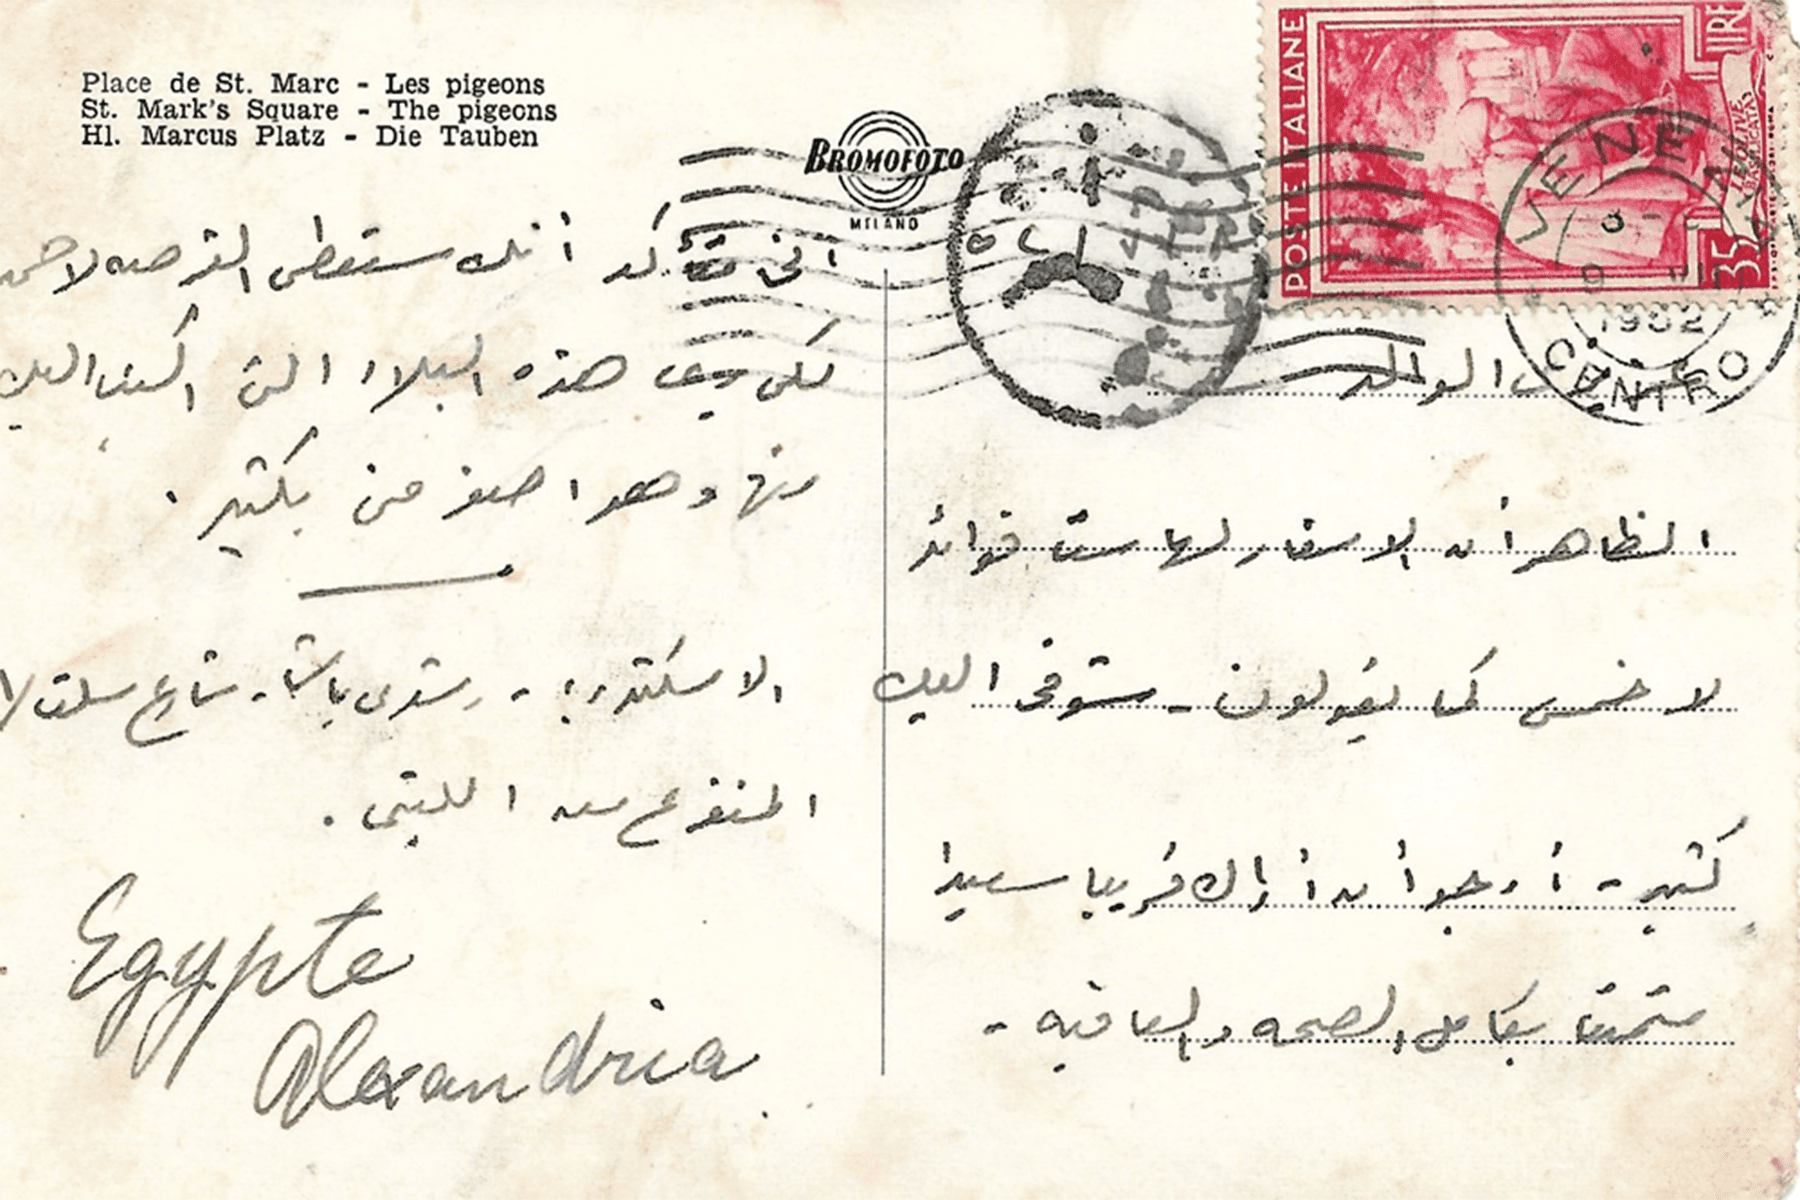 Place de St. Marc - Les pigeons
St. Mark's Square - The pigeons
Hl. Marcus Platz - Die Tauben
BROMOFOTO
MILANO
POSTE ITALIANE
LIRE 35
VENEZIA
1952
CENTRO
الوالد
الظاهر أن الاسفار لها ست فوائد
لا خمس كما يقولون - شوقى اليك
كثير - أرجو أن أراك قريبا سعيدا
متمتعا بكامل الصحه والعافيه -
انى متأكد أنك ستعطى الفرصه لاحمد
لكى هذه البلاد التى اكتب اليك
منها وهو اصغر منى بكثير .
الاسكندريه - رشدى باشا - شارع
المتفرع من
Egypte
Alexandria